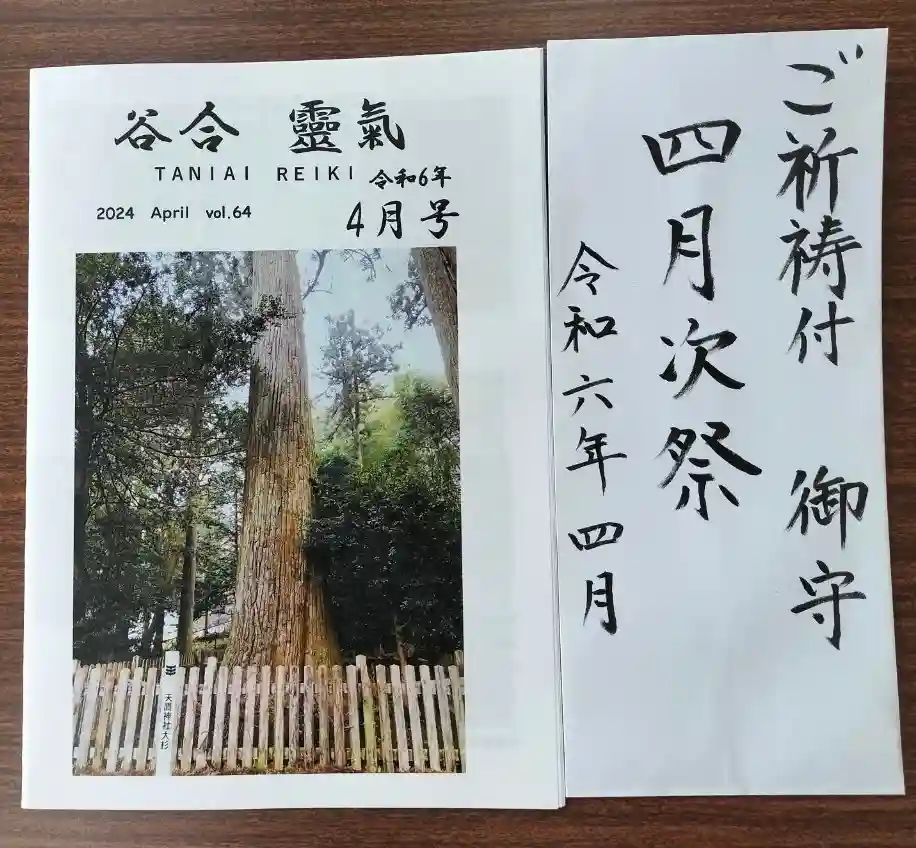 谷合 靈氣
TANIAI REIKI
令和6年
2024 April vol.64
4月号
天満神社大杉
ご祈祷付 御守
四月次祭
令和六年四月